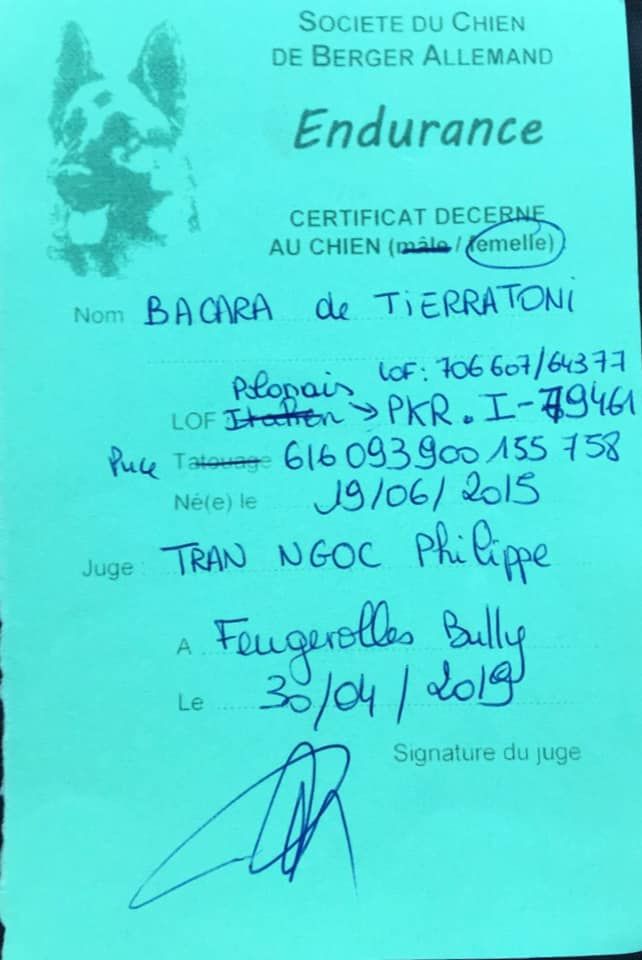 SOCIETE DU CHIEN
DE BERGER ALLEMAND
Endurance
CERTIFICAT DECERNE
AU CHIEN (mâle / femelle)
Nom BACARA de TIERRATONI
LOF: 706 607/64377
Polonais
LOF Italien → PKR. I-79461
Puce Tatouage 616 093 900 155 758
Né(e) le 19/06/2015
Juge : TRAN NGOC Philippe
A Feugerolles Bully
Le 30/04/2019
Signature du juge